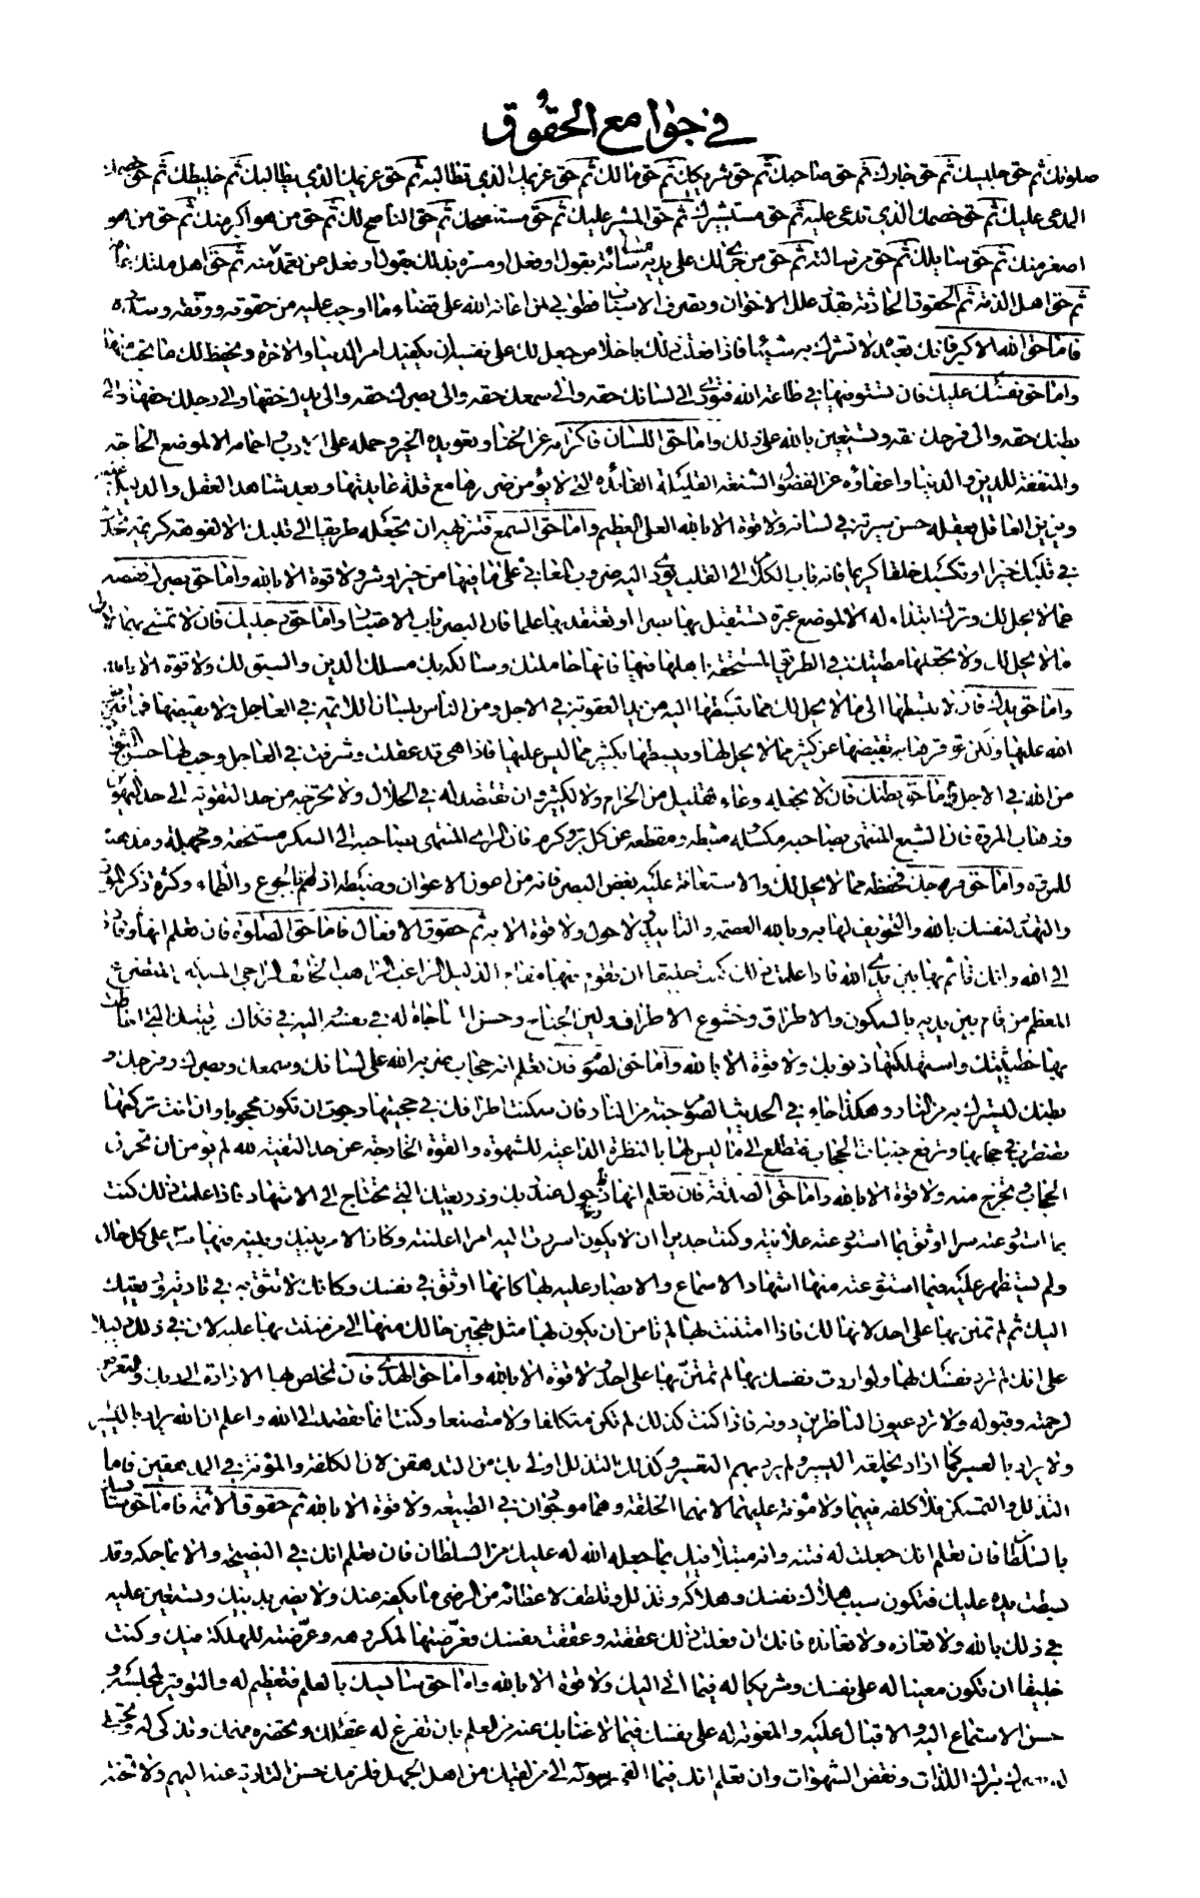 في جوامع الحقوق
صلوتك ثم حق جليسك ثم حق جارك ثم حق صاحبك ثم حق شريكك ثم حق مالك ثم حق غريمك الذي تطالبه ثم حق غريمك الذي يطالبك ثم خليطك ثم حق خصمك
المدعى عليك ثم حق خصمك الذي تدعى عليه ثم حق مستشيرك ثم حق المشير عليك ثم حق مستنصحك ثم حق الناصح لك ثم حق من هو اكبر منك ثم حق من هو
اصغر منك ثم حق سايلك ثم حق من سالته ثم حق من جرى لك على يديه مسائة بقول او فعل او مسرة بذلك بقول او فعل عن تعمد منه ثم حق اهل ملتك عامة
ثم حق اهل الذمة ثم الحقوق الحادثة بقدر علل الاحوال وتصرف الاسباب فطوبى لمن اعانه الله على قضاء ما اوجب عليه من حقوقه ووفقه وسدده
فاما حق الله الاكبر فانك تعبده لا تشرك به شيئا فاذا فعلت ذلك باخلاص جعل لك على نفسه ان يكفيك امر الدنيا والاخرة ويحفظ لك ما تحب منهما
واما حق نفسك عليك فان تستوفيها في طاعة الله فتؤدى الى لسانك حقه والى سمعك حقه والى بصرك حقه والى يدك حقها والى رجلك حقها والى
بطنك حقه والى فرجك حقه وتستعين بالله على ذلك واما حق اللسان فاكرامه عن الخنا وتعويده الخير وحمله على الادب واجمامه الا لموضع الحاجة
والمنفعة للدين والدنيا واعفاؤه عن الفضول الشنعة القليلة الفائدة التي لا يؤمن ضررها مع قلة عايدتها وبعد شاهد العقل والدليل عليه
وتزين العاقل بعقله حسن سيرته في لسانه ولا قوة الا بالله العلى العظيم واما حق السمع فتنزيهه ان تجعله طريقا الى قلبك الا لفوهة كريمة تحدث
في قلبك خيرا او تكسبك خلقا كريما فانه باب الكلام الى القلب يؤدى اليه ضروب المعاني على ما فيها من خير او شر ولا قوة الا بالله واما حق بصرك فغضه
عما لا يحل لك وترك ابتذاله الا لموضع عبرة تستقبل بها بصرا او تعتقد بها علما فان البصر باب الاعتبار واما حق رجليك فان لا تمشى بهما الى
ما لا يحل لك ولا تجعلها مطيتك في الطريق المستخفة باهلها فيها فانها حاملتك وسالكة بك مسلك الدين والسبق لك ولا قوة الا بالله
واما حق يدك فان لا تبسطها الى ما لا يحل لك فتنال بما تبسطها اليه من يد العقوبة في الاجل ومن الناس بلسان اللائمة في العاجل ولا تقبضها عما افترض
الله عليها ولكن توقرها به تقبضها عن كثير مما لا يحل لها وتبسطها بكثير مما ليس عليها فاذا هى قد عقلت وشرفت في العاجل وجب لها حسن الثواب
من الله في الاجل واما حق بطنك فان لا تجعله وعاء لقليل من الحرام ولا لكثير وان تقتصد له في الحلال ولا تخرجه من حد التقوية الى حد التهوين
وذهاب المروة فان الشبع المنتهى بصاحبه مكسلة ومثبطة ومقطعة عن كل بر وكرم فان الراى المنتهى بصاحبه الى السكر مستخفة ومجهلة ومذهبة
للمروة واما حق فرجك فحفظه مما لا يحل لك والاستعانة عليه بغض البصر فانه من اعون الاعوان وضبطه اذا هم بالجوع والظماء وكثرة ذكر الموت
والتهدد لنفسك بالله والتخويف لها به وبالله العصمة والتاييد ولا حول ولا قوة الا به ثم حقوق الافعال فاما حق الصلوة فان تعلم انها وفادة
الى الله وانك قائم بها بين يدى الله فاذا علمت ذلك كنت خليقا ان تقوم فيها مقام الذليل الراغب الراهب الخائف الراجى المسكين المتضرع
المعظم من قام بين يديه بالسكون والاطراق وخشوع الاطراف ولين الجناح وحسن المناجاة له في نفسه اليه في فكاك رقبتك التي احاطت
بها خطيئتك واستهلكتها ذنوبك ولا قوة الا بالله واما حق الصوم فان تعلم انه حجاب ضربه الله على لسانك وسمعك وبصرك وفرجك و
بطنك ليسترك به من النار وهكذا جاء في الحديث الصوم جنة من النار فان سكنت اطرافك في حجبتها رجوت ان تكون محجوبا وان انت تركتها
تضطرب في حجابها وترفع جنبات الحجاب فتطلع الى ما ليس لها بالنظرة الداعية للشهوة والقوة الخارجة عن حد التقية لله لم يؤمن ان تخرق
الحجاب وتخرج منه ولا قوة الا بالله واما حق الصدقة فان تعلم انها ذخرك عند ربك ووديعتك التي لا تحتاج الى الاشهاد فاذا علمت ذلك كنت
بما استودعته سرا اوثق بما استودعته علانية وكنت جديرا ان لا يكون اسررت اليه امرا اعلنته وكان الامر بينك وبينه فيها سرا على كل حال
ولم تستظهر عليه فيما استودعته منها اشهاد الاسماع والابصار عليه بها كانها اوثق في نفسك وكانك لا تثق به في تادية وديعتك
اليك ثم لم تمتن بها على احد لانها لك فاذا امتننت بها لم تامن ان يكون بها مثل تهجين حالك منها الى من مننت بها عليه لان في ذلك دليلا
على انك لم ترد نفسك بها ولو اردت نفسك بها لم تمتن بها على احد ولا قوة الا بالله واما حق الهدى فان تخلص بها الارادة الى ربك والتعرض
لرحمته وقبوله ولا ترد عيون الناظرين دونه فاذا كنت كذلك لم تكن متكلفا ولا متصنعا وكنت انما تقصد الى الله واعلم ان الله يراد باليسير
ولا يراد بالعسير كما اراد بخلقه اليسير ولم يرد بهم التعسير وكذلك التذلل اولى بك من التدهقن لان الكلفة والمؤنة في المدهقين فاما
التذلل والتمسكن فلا كلفة فيهما ولا مؤنة عليهما لانهما الخلقة وهما موجودان في الطبيعة ولا قوة الا بالله ثم حقوق الائمة فاما حق سائسك
بالسلطان فان تعلم انك جعلت له فتنة وانه مبتلا فيك بما جعله الله له عليك من السلطان فان تعلم انك في النصيحة والا تماحكه وقد
بسطت يده عليك فتكون سبب هلاك نفسك وهلاكه وتذلل وتلطف لاعطائه من الرضى ما يكفه عنك ولا يضر بدينك وتستعين عليه
في ذلك بالله ولا تعازه ولا تعانده فانك ان فعلت ذلك عققته وعققت نفسك فعرضتها لمكروهه وعرضته للهلكة فيك وكنت
خليقا ان تكون معينا له على نفسك وشريكا له فيما اتى اليك ولا قوة الا بالله واما حق سائسك بالعلم فتعظيم له والتوقير لمجلسه و
حسن الاستماع اليه والاقبال عليه والمعونة له على نفسك فيما لا غنا بك عنه من العلم بان تفرغ له عقلك وتحضره فهمك وتذكى له وتجلى
له بصرك بترك اللذات ونقض الشهوات وان تعلم انك فيما القى رسوله الى من لقيك من اهل الجهل فلزمك حسن التادية عنه اليهم ولا تخنه